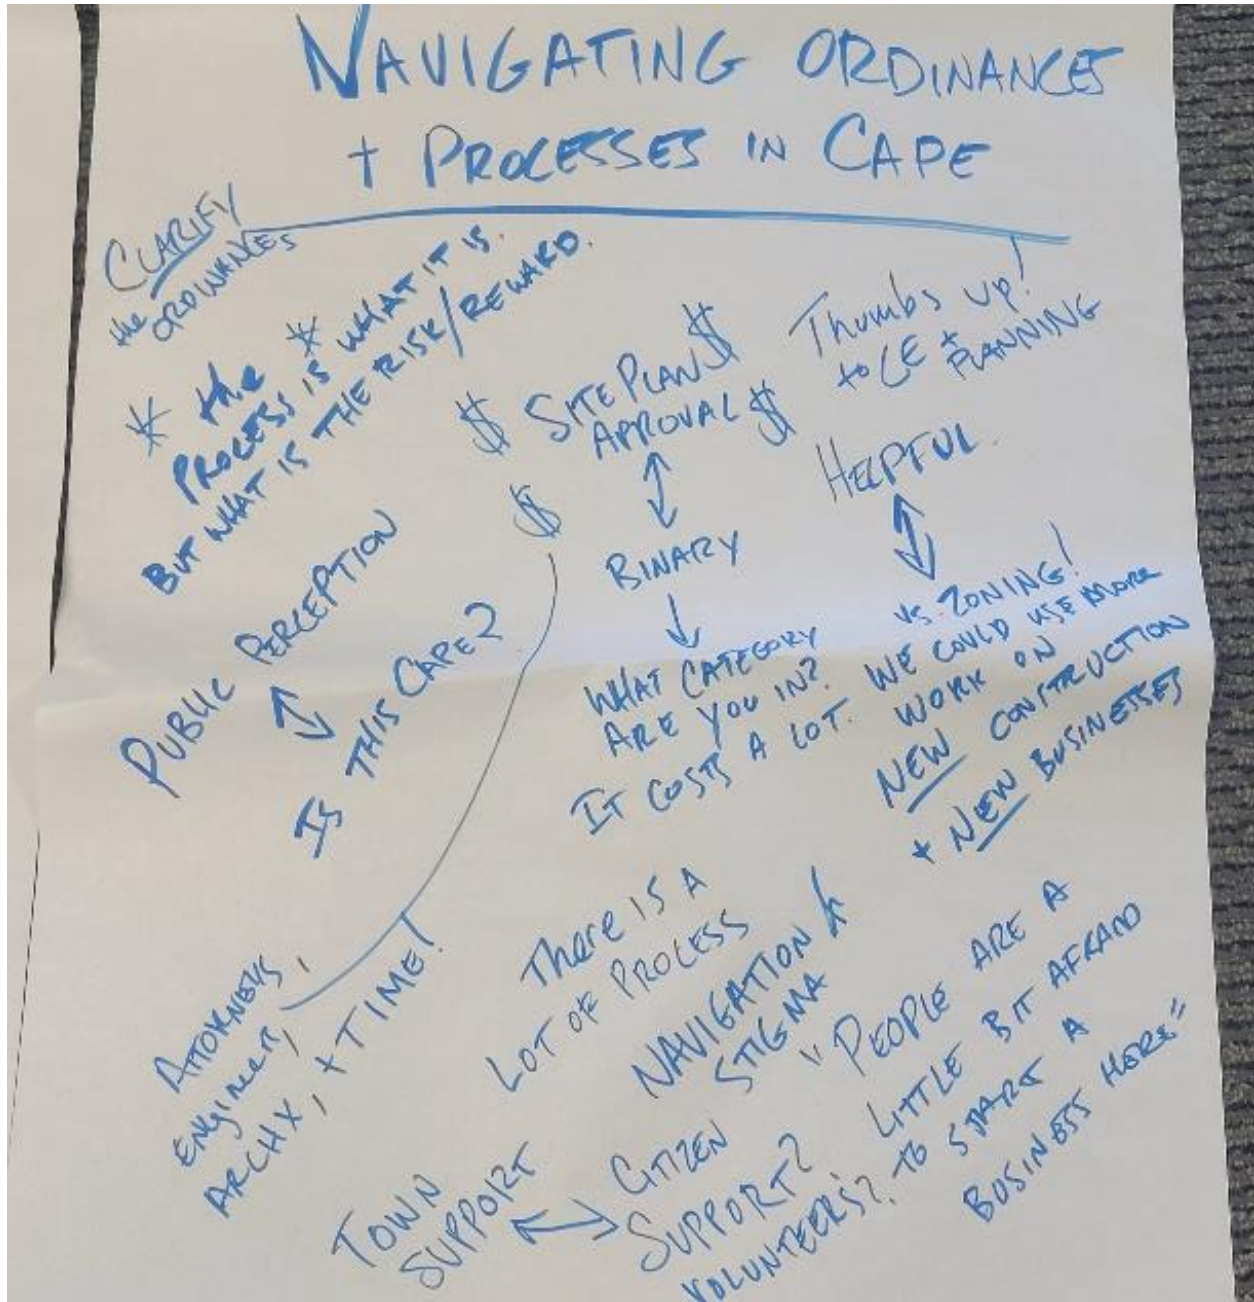 NAVIGATING ORDINANCES
+ PROCESSES IN CAPE
CLARIFY
the ORDINANCES
* the *
PROCESS IS WHAT IT IS.
BUT WHAT IS THE RISK/REWARD.
$ SITE PLAN $
APPROVAL $
$
BINARY
WHAT CATEGORY
ARE YOU IN?
IT COSTS A LOT.
Thumbs up!
to CE +
PLANNING
HELPFUL.
vs. ZONING!
WE COULD USE MORE
WORK ON
NEW CONSTRUCTION
+ NEW BUSINESSES
PUBLIC PERCEPTION
IS THIS CAPE?
ATTORNEYS,
ENgineers,
ARCHX, + TIME!
There IS A
LOT OF PROCESS
NAVIGATION
STIGMA
"PEOPLE ARE A
LITTLE BIT AFRAID
TO START A
BUSINESS HERE"
TOWN
SUPPORT
CITIZEN
SUPPORT?
VOLUNTEERS?